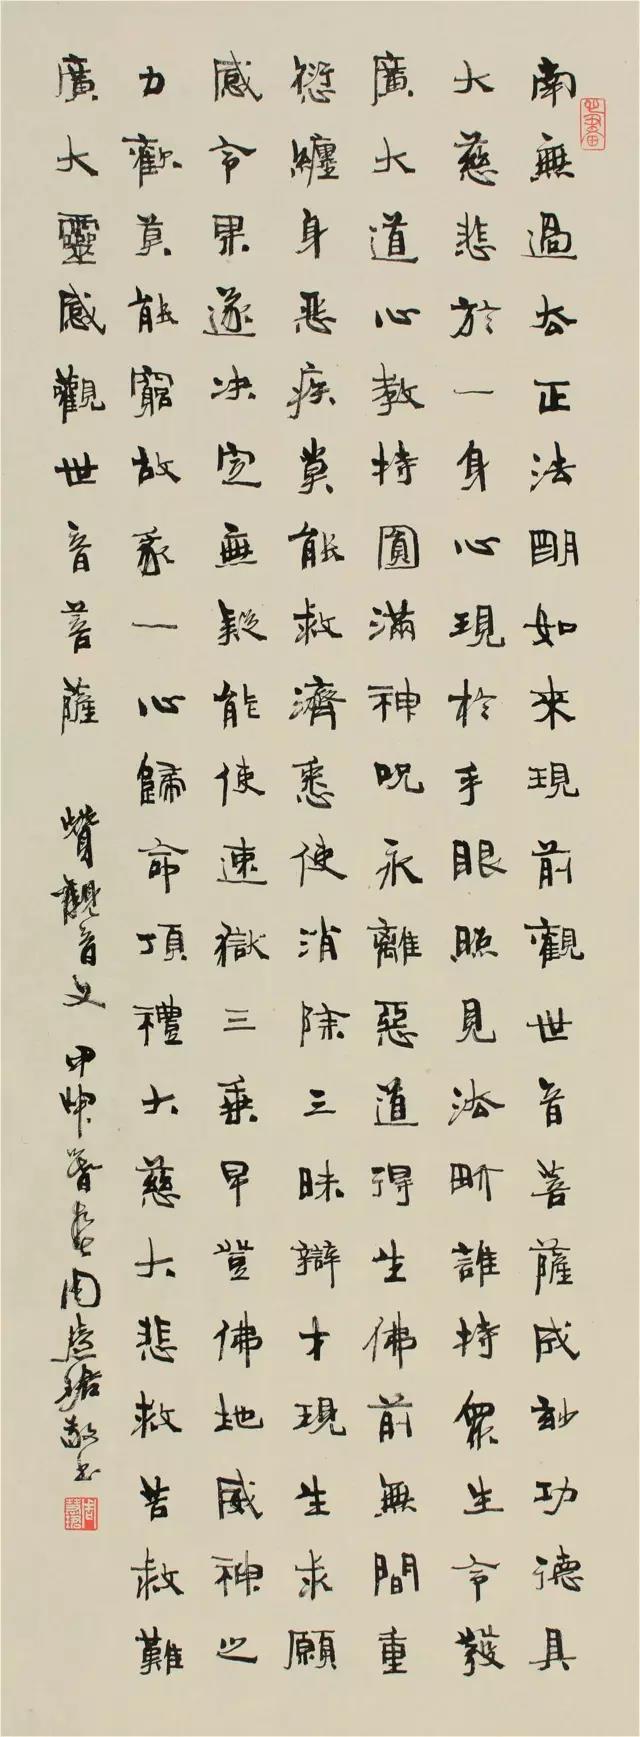 南無過去正法明如來現前觀世音菩薩成妙功德具
大慈悲於一身心現於手眼照見法界誰持眾生令發
廣大道心教持圓滿神呪永離惡道得生佛前無間重
愆纏身惡疾莫能救濟悉使消除三昧辯才現生求願
感令果遂決定無疑能使速獄三乘早登佛地威神之
力歡莫能窮故我一心歸命頂禮大慈大悲救苦救難
廣大靈感觀世音菩薩
贊觀音文 甲申 周慧珺敬书
周慧珺